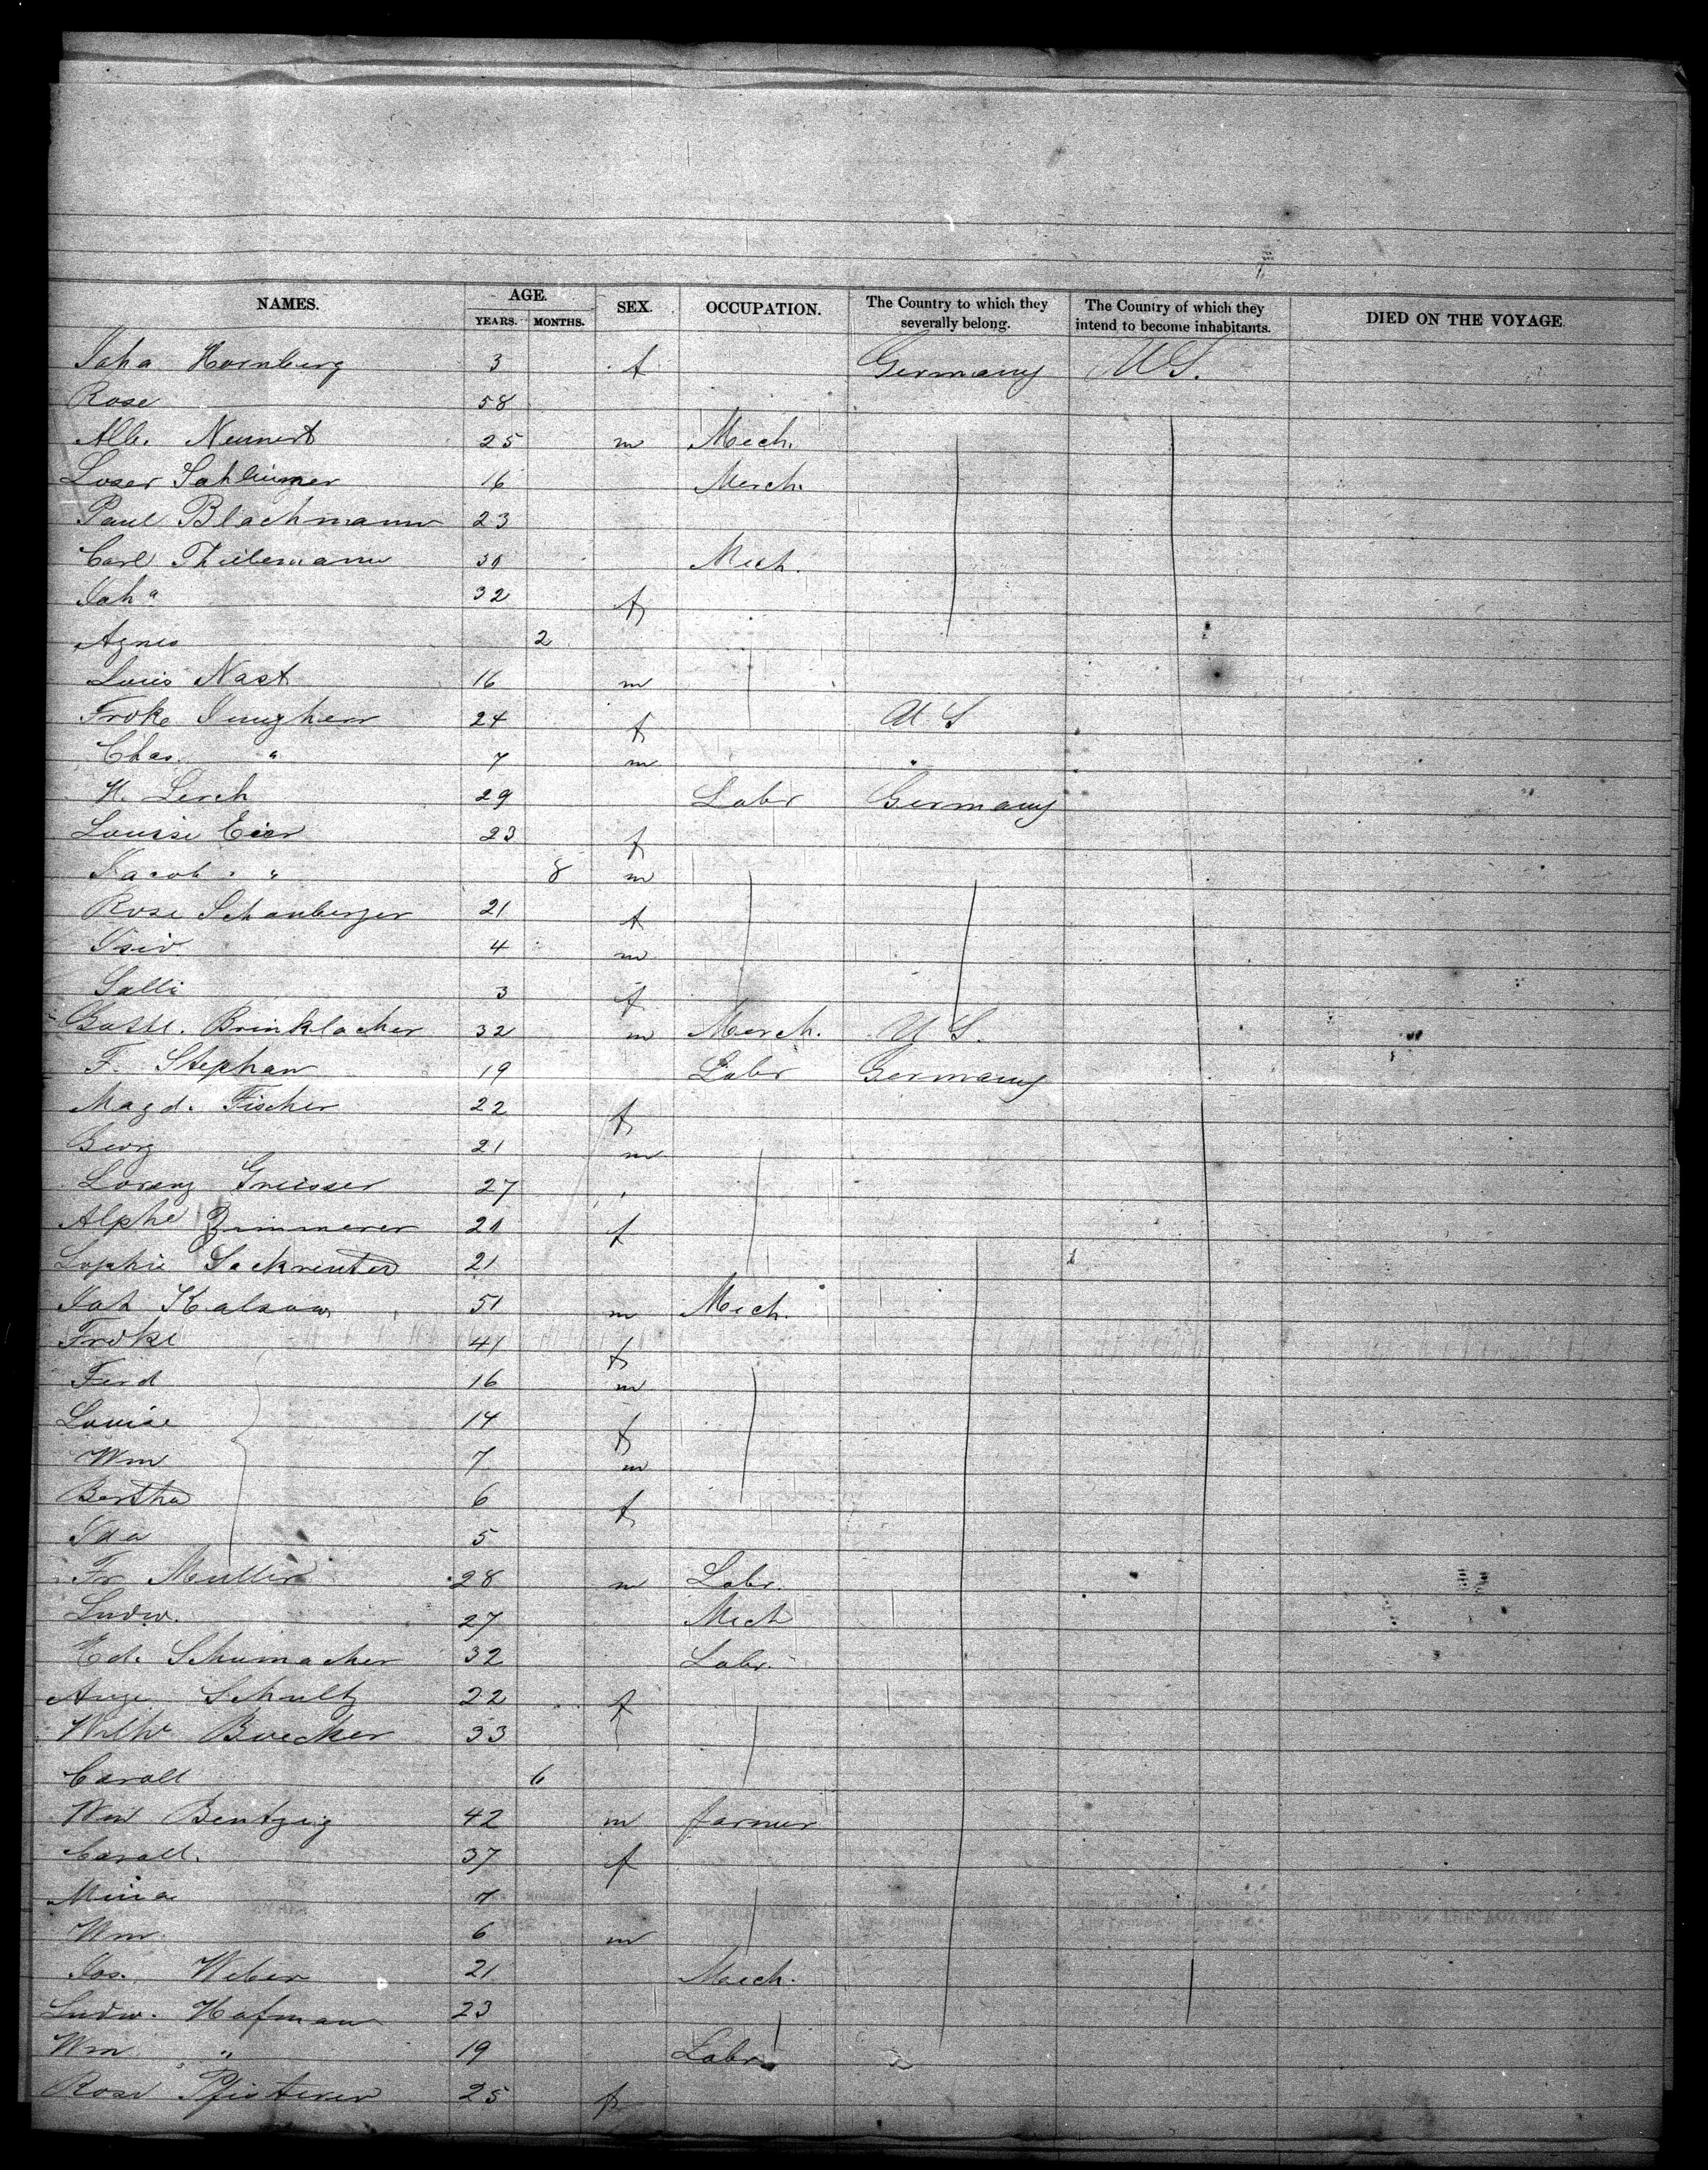 NAMES. AGE. SEX. OCCUPATION. The Country to which they severally belong. The Country of which they intend to become inhabitants. DIED ON THE VOYAGE.
YEARS. MONTHS.
Joha Hornberg 3 f Germany U S.
Rose 58
Alb. Neunert 25 m Mech.
Loser 16 Merch.
Paul Blachmann 23
Carl Thielemann 30 Mech.
Joha 32 f
Agnes 2
Louis Nast 16 m
Frdke Jungherr 24 f U S
Chas. " 7 m "
H. Lerch 29 Labr Germany
Louise Eier 23 f
Jacob " 8 m
Rose Schauberger 21 f
Isid. 4 m
Salli 3 f
Gustl. Brinklacher 32 m Merch. U S.
F. Stephan 19 Labr Germany
Magd. Fischer 22 f
Georg 21 m
Lorenz Greisser 27
Alphe Zimmerer 20 f
Sophie Sackreuter 21
Joh Kalsow 51 m Mech.
Frdke 41 f
Ferd 16 m
Louise 14 f
Wm 7 m
Bertha 6 f
Ida 5
Fr Muller 28 m Labr.
Ludw. 27 Mech
Ed. Schumacher 32 Labr.
Auge Schultz 22 f
Wilhe Buecker 33
Caroll 6
Wm Bentzig 42 m farmer
Caroll. 37 f
Mina 7
Wm 6 m
Jos. Weber 21 Mech.
Ludw. Hofmann 23
Wm " 19 Labr
Rose Pfisterer 25 f